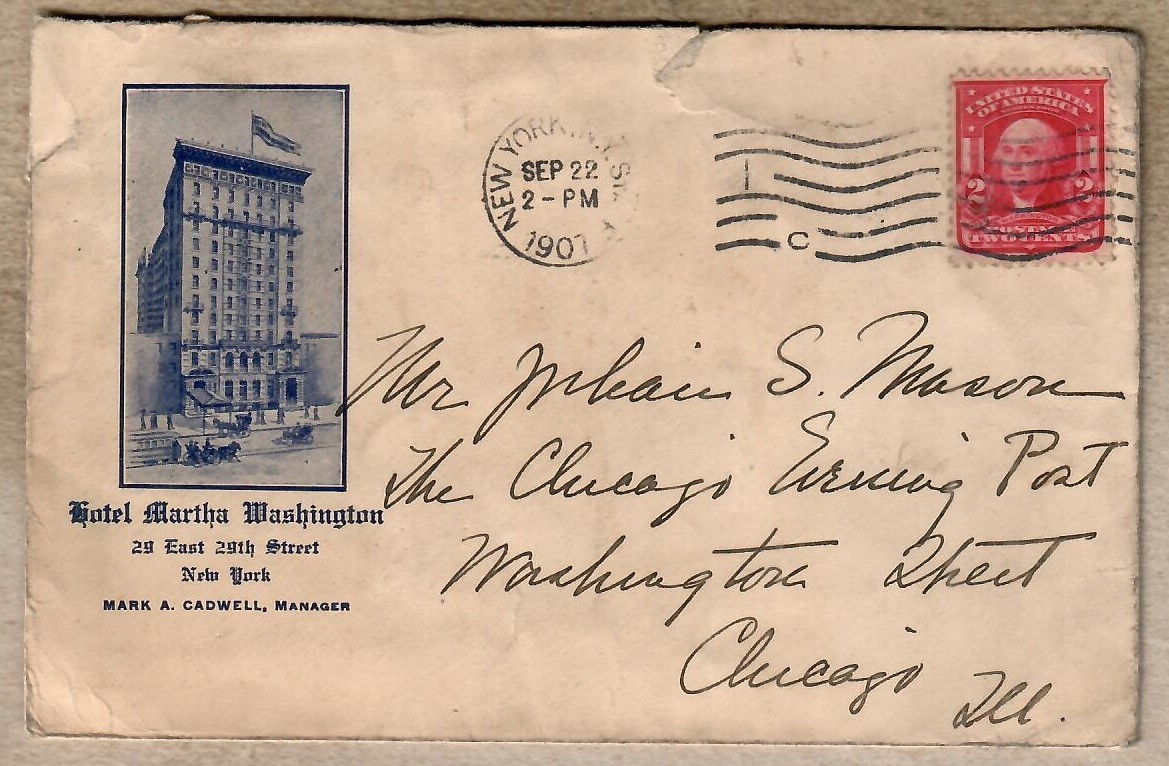 Hotel Martha Washington
29 East 29th Street
New York
MARK A. CADWELL, MANAGER
NEW YORK, N.Y.
SEP 22
2-PM
1907
1
C
UNITED STATES
OF AMERICA
2 2
POSTAGE
TWO CENTS
Mr Julian S. Mason
The Chicago Evening Post
Washington Street
Chicago
Ill.